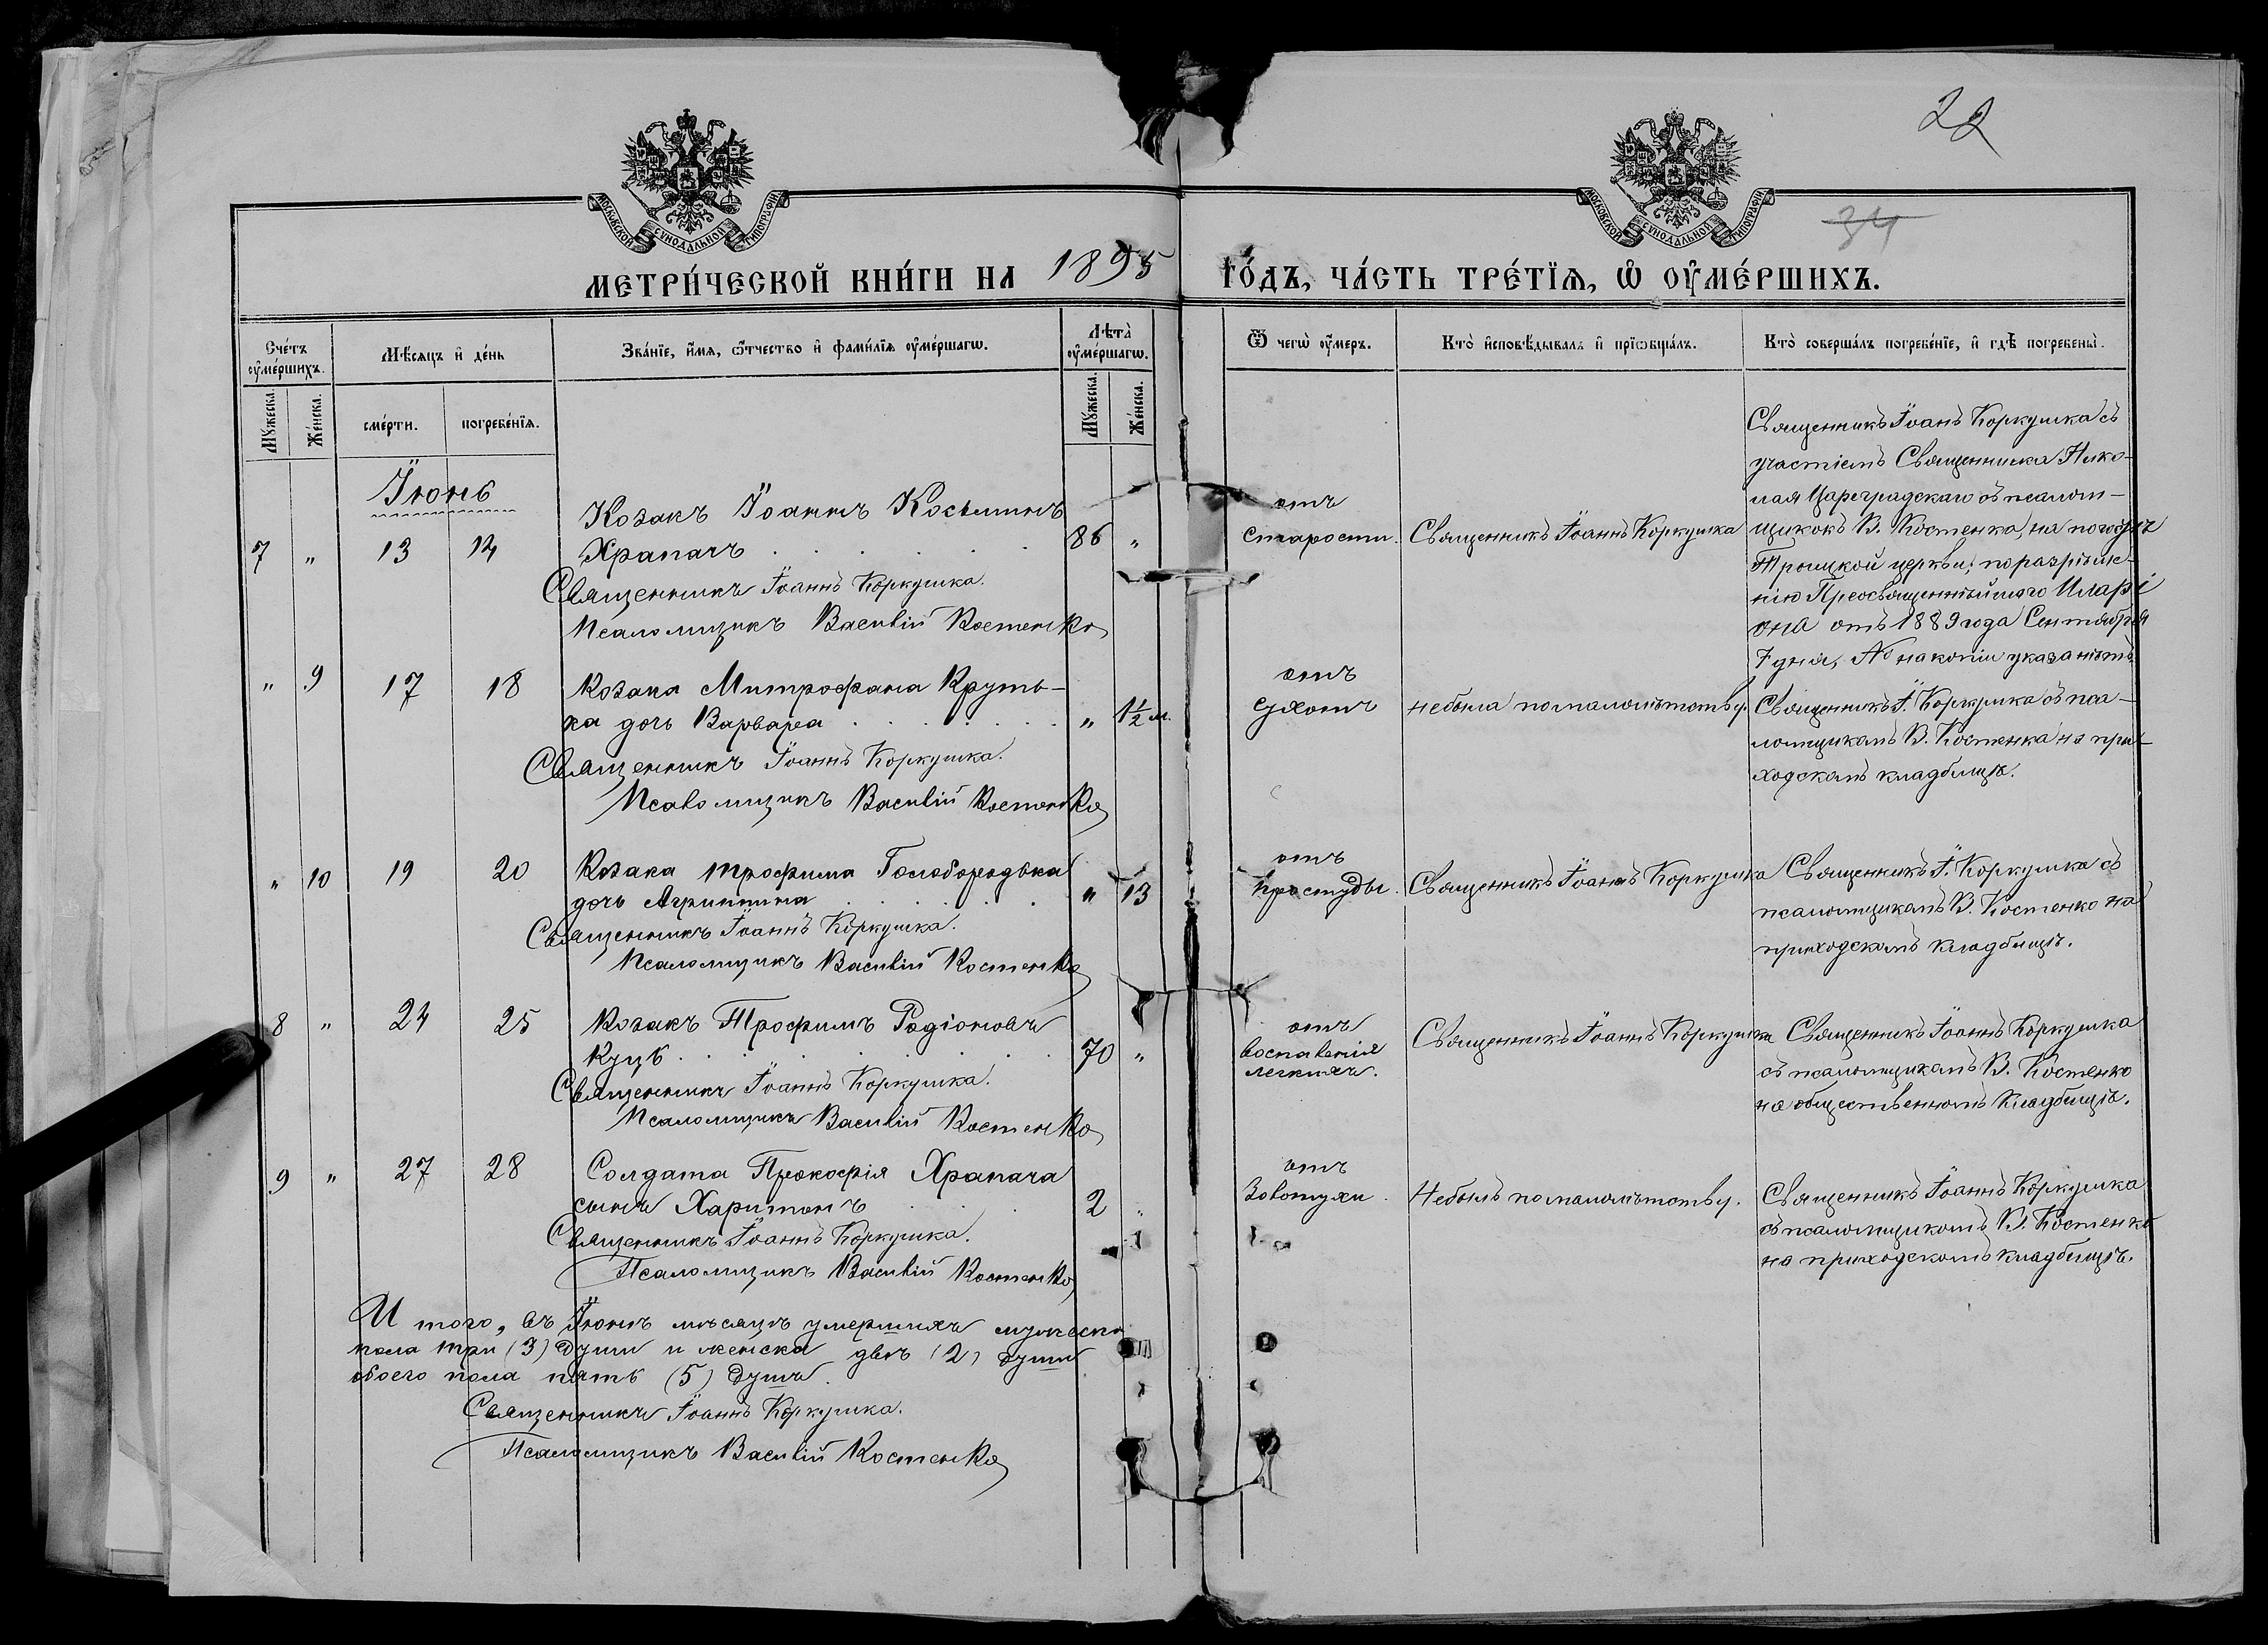 22
34
МОСКОВСКОЙ СУНОДАЛЬНОЙ ТИПОГРАФІИ
МОСКОВСКОЙ СУНОДАЛЬНОЙ ТИПОГРАФІИ
МЕТРИ́ЧЕСКОЙ КНИ́ГИ НА 1895 ГО́ДЪ, ЧА́СТЬ ТРЕ́ТЇѦ, Ѡ ОУ҆МЕ́РШИХЪ.
Сче́тъ оу҆ме́ршихъ.
Мꙋ́жеска.
Же́нска.
Мѣ́сяцъ и҆ де́нь
сме́рти.
погребе́нїѧ.
Зва́нїе, и҆́мѧ, ѻ҆́тчество и҆ фами́лїѧ оу҆ме́ршагѡ.
Лѣта̀ оу҆ме́ршагѡ.
Мꙋ́жеска.
Же́нска.
Ѿ чегѡ̀ оу҆́меръ.
Кто̀ и҆сповѣ́дывалъ и҆ прїѡбща́лъ.
Кто̀ соверша́лъ погребе́нїе, и҆ гдѣ̀ погребены̀.
Їюнь
7 " 13 14 Козакъ Їоаннъ Косьминъ
Храпачъ 86 "
Священникъ Їоаннъ Коркушка.
Псаломщикъ Василій Костенко
отъ
старости.
Священникъ Їоаннъ Коркушка
Священникъ Їоанъ Коркушка съ
участіемъ Священника Нико-
лая Цареградскаго съ псалом-
щикокъ В. Костенка, на погостѣ
Троицкой церкви, по разрѣше-
нію Преосвященнѣйшаго Иларі
она отъ 1889 года Сентября
7 дня, № на копіи указа нѣтъ
" 9 17 18 Козака Митрофана Круть-
ка дочь Варвара " 1½ м.
Священникъ Їоаннъ Коркушка.
Псаломщикъ Василій Костенко
отъ
не была по малолѣтству.
Священникъ Ї. Коркушка съ пса-
ломщикамъ В. Костенка на при-
ходскамъ кладбищѣ.
" 10 19 20 Козака Трофима Голобородька
дочь Агриппина " 13
Священникъ Їоаннъ Коркушка.
Псаломщикъ Василій Костенко
отъ
простуды.
Священникъ Їоаннъ Коркушка
Священникъ Ї. Коркушка съ
псаломщикамъ В. Костенко на
приходскамъ кладбищѣ.
8 " 24 25 Козакъ Трофимъ Родіоновъ
Куцъ 70 "
Священникъ Їоаннъ Коркушка.
Псаломщикъ Василій Костенко
отъ
воспаленія
легкихъ.
Священникъ Їоаннъ Коркушка
Священникъ Їоаннъ Коркушка
съ псаломщикамъ В. Костенко
на общественномъ кладбищѣ.
9 " 27 28 Солдата Прокофія Храпача
сынъ Харитонъ 2 "
Священникъ Їоаннъ Коркушка.
Псаломщикъ Василій Костенко
отъ
Золотухи.
Не былъ по малолѣтству.
Священникъ Їоаннъ Коркушка
съ псаломщикомъ В. Костенко
на приходскомъ кладбищѣ.
И того, въ Їюнѣ мѣсяцѣ умершихъ мужеска
пола три (3) души и женска двѣ (2) души
обоего пола пять (5) душъ.
Священникъ Їоаннъ Коркушка.
Псаломщикъ Василій Костенко